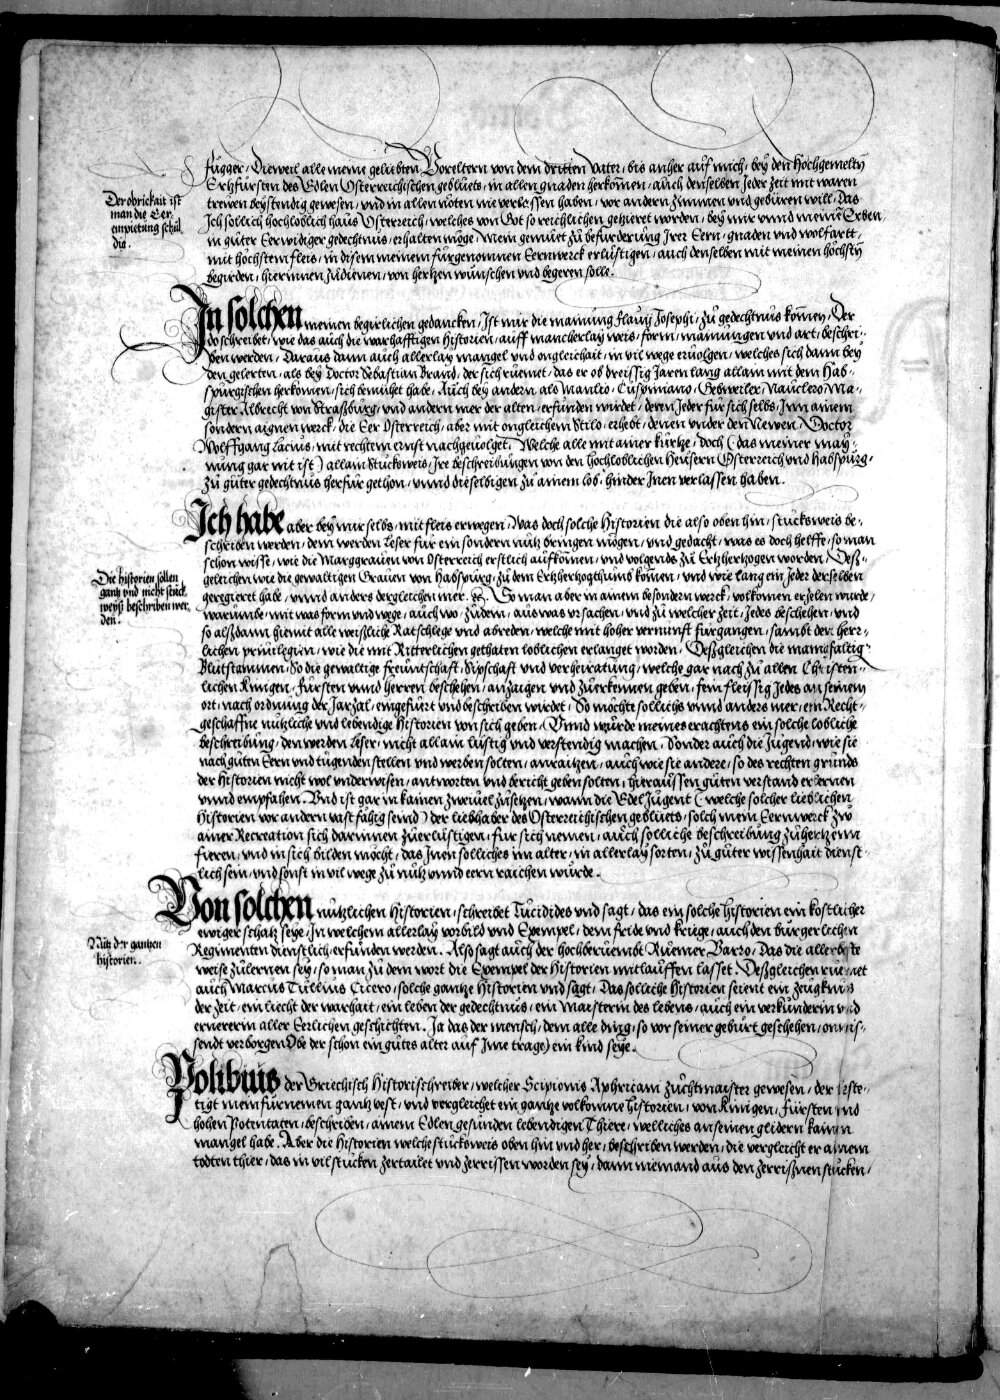 fugger, Dieweil alle meine geliebten Voreltern von dem dritten Vater, bis anher auf mich, bey den Hochgemelten
Ertzfürsten des Edlen Osterreichischen geblüets, in allen gnaden herkomen, auch denselben Jeder zeit mit waren
Der obrickait ist
man die Eer
empietung schul
dig.
trewen beystendig gewesen, vnd in allen nöten nie verlassen haben, vor andern zimmen vnd gebüren will, Das
Ich sollich hochloblich haus Osterreich, welches von Got so reichlichen getzieret worden, bey mir vnnd meinen Erben,
in guter Eerwidiger gedechtnus, erhalten möge, Mein gemuet zu befurderung Irer Eern, gnaden vnd wolfartt,
mit höchstem fleis, in disem meinem fürgenomnen Eernwerck erlustigen, auch denselben mit meinen höchsten
begirden, hierinnen zudienen, von hertzen wünschen vnd begeren solle.
In solchen meinen begirlichen gedancken, Ist mir die mainung flauij Josephi, zu gedechtnus komen, Der
do schreibet, wie das auch die warhafftigen Historien, auff mancherlay weis, form, mainungen vnd art, beschri-
ben werden, Daraus dann auch allerlay mangel vnd ongleichait, in vil wege eruolgen, welches sich dann bey
den gelerten, als bey Doctor Sebastian Brand, der sich ruemet, das er ob dreissig Jaren lang allain mit dem Hab-
spurgischen herkomen, sich bemühet habe, Auch bey andern, als Manlio, Cuspiniano, Gebweiler, Nauclero, Ma-
gister Albrecht von Straßburg, vnd andern mer der alten, erfunden wurdet, deren Jeder für sich selbs, Inn ainem
sondern aignen werck, die Eer Osterreich, aber mit ongleichem Stilo, erhebt, denen vnder den Newen, Doctor
Wolffgang Lacius, mit rechtem ernst nachgeuolget. Welche alle mit ainer kürtze, doch (das meiner may-
nung gar nit ist) allain stuckoweis, Ire beschreibungen von den hochloblichen Heusern Osterreich vnd Habspurg,
zu guter gedechtnus herfür gethon, vnnd dieselbigen zu ainem lob, hinder Inen verlassen haben.
Ich habe aber bey mir selbs, mit fleis erwegen, Was doch solche Historien die also oben hin, stucksweis be-
schriben werden, dem werden Leser für ein sondern nutz bringen mögen, vnd gedacht, was es doch helffe, so man
schon wisse, wie die Marggrauen von Osterreich erstlich aufkomen, vnd volgends zu Ertzhertzogen worden, Deß-
Die historien sollen
gantz vnd nicht stuck
weyß beschriben wer
den.
geleichen wie die gewaltigen Grauen von Habspurg, zu dem Ertzhertzogthumb komen, vnd wie lang ein Jeder derselben
geregieret habe, vnnd anders dergleichen mer. So man aber in ainem besondern werck, volkomen erzelen wurde,
warumbe, mit was form vnd wege, auch wo, zudem, aus was vrsachen, vnd zu welcher zeit, Jedes beschehen, vnd
so alßdann hiemit alle weißliche Ratschlege vnd abreden, welche mit hoher vernunft fürgangen, sambt den herr-
lichen priuilegien, wie die mit Ritterlichen gethaten loblichen erlanget worden, Deßgleichen die manigfaltig
Blutstammen, So die gewaltige freuntschaft, Sipschaft vnd verheiratung, welche gar nach zu allen Christen-
lichen Künigen, fürsten vnnd Herren beschehen, anzaigen vnd zuerkennen geben, fein fleissig Jedes an seinem
ort, nach ordnung der Jarzal, eingefürt vnd beschriben wurdet, So möchte sollichs vnnd anders mer, ein Recht-
geschaffne nutzliche vnd lebendige Historien von sich geben, Vnnd wurde meines erachtens ein solche lobliche
beschreibung, den werden Leser, nicht allain lustig vnd verstendig machen, Sonder auch die Jugend, wie sie
nach guten Eern vnd tugenden stellen vnd werben solten, anraitzen, auch wie sie andere, so des rechten grunds
der Historien nicht wol vnderwisen, antworten vnd bericht geben solten, hieraussen guten verstand erlernen
vnnd empfahen. Vnd ist gar in kainen zweiuel zusetzen, wann die Edel Jugent (welche solcher lieblichen
Historien vor andern vast fähig seind) der liebhaber des Osterreichischen geblüets, solch mein Eernwerck zu
ainer Recreation sich darinnen zuerlustigen, für sich nemen, auch solliche beschreibung zu hertzenn
fieren, vnd in sich bilden möcht, das Inen solliches im alter, in allerlay sorten, zu guter wissenhait dienst-
lich sein, vnd sonst in vil wege zu nutz vnnd eern raichen wurde.
Von solchen nutzlichen Historien, schreibet Tucidides vnd sagt, das ein solche historien ein kostlicher
ewiger schatz seye, In welchem allerlay vorbild vnd Exempel, dem fride vnd kriege, auch den burgerlichen
Nutz der gantzen
historien.
Regimenten dienstlich erfunden werden. Also sagt auch der hochberuembt Ruemer Varro, Das die allerbeste
weise zulernen sey, so man zu dem wort die Exempel der Historien mitlauffen lasset. Deßgleichen ruemet
auch Marcus Tullius Cicero, solche gantze Historien vnd sagt, Das solliche Historien seient ein zeugknus
der zeit, ein liecht der warhait, ein leben der gedechtnus, ein Maisterin des lebens, auch ein verkünderin vnd
ernererin aller Eerlichen geschichten. Ja das der mensch, dem alle ding, so vor seiner geburt geschehen, onwis-
sendt verborgen (Obe der schon ein gutes alter auf Ime trage) ein kind seye.
Polibius der Griechisch Historischreiber, welcher Scipionis Aphricani zuchtmaister gewesen, der
tigt mein fürnemen gantz vest, vnd vergleichet ein gantze volkomne historien, von Künigen, fürsten vnd
hohen Potentaten, beschriben, ainem Edlen gesunden lebendigen Thiere, welliches an seinen glidern kainen
mangel habe. Aber die Historien welche stuckoweis oben hin vnd her, beschriben werden, die vergleicht er ainem
todten thier, das in vil stucken zertailet vnd zerrissen worden sey, dann niemand aus den zerrißnen stucken,